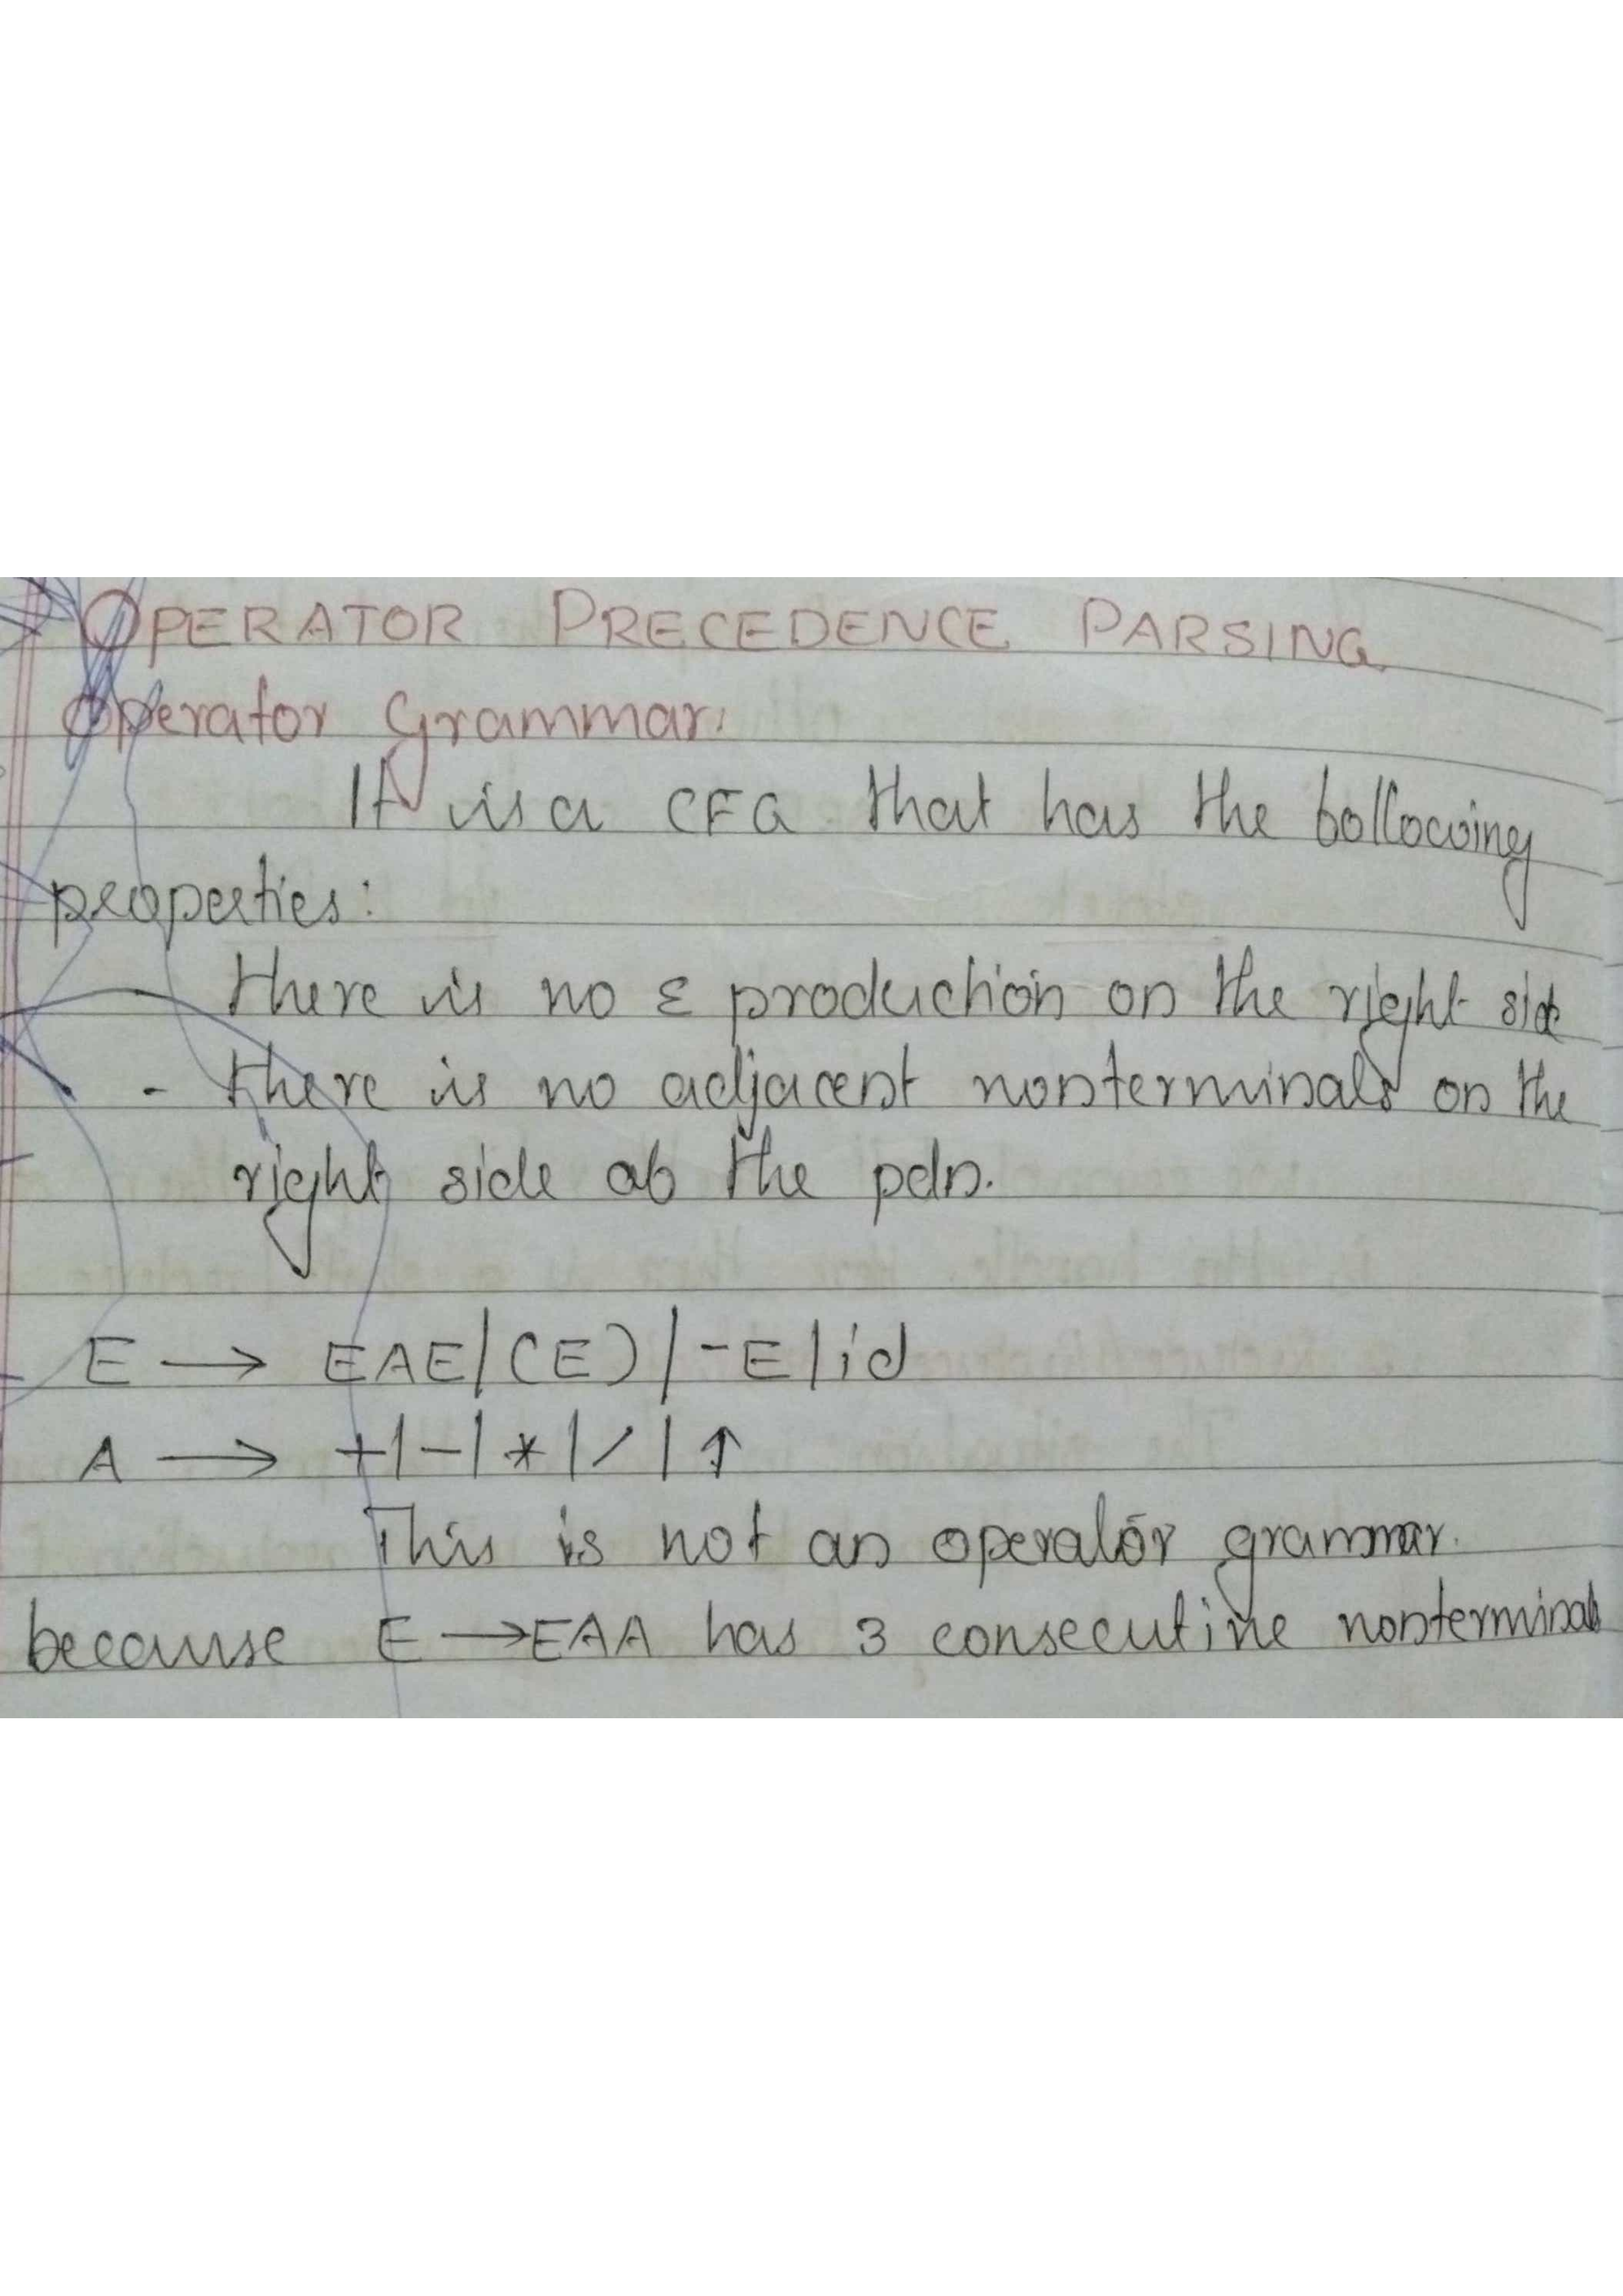 OPERATOR PRECEDENCE PARSING.
Operator Grammar:
It is a CFG that has the following
properties:
- there is no ε production on the right side
- there is no adjacent nonterminals on the
right side of the pdn.
E → EAE/(E)/-E/id
A → +|-|*|/|↑
This is not an operator grammar.
because E → EAA has 3 consecutive nonterminals